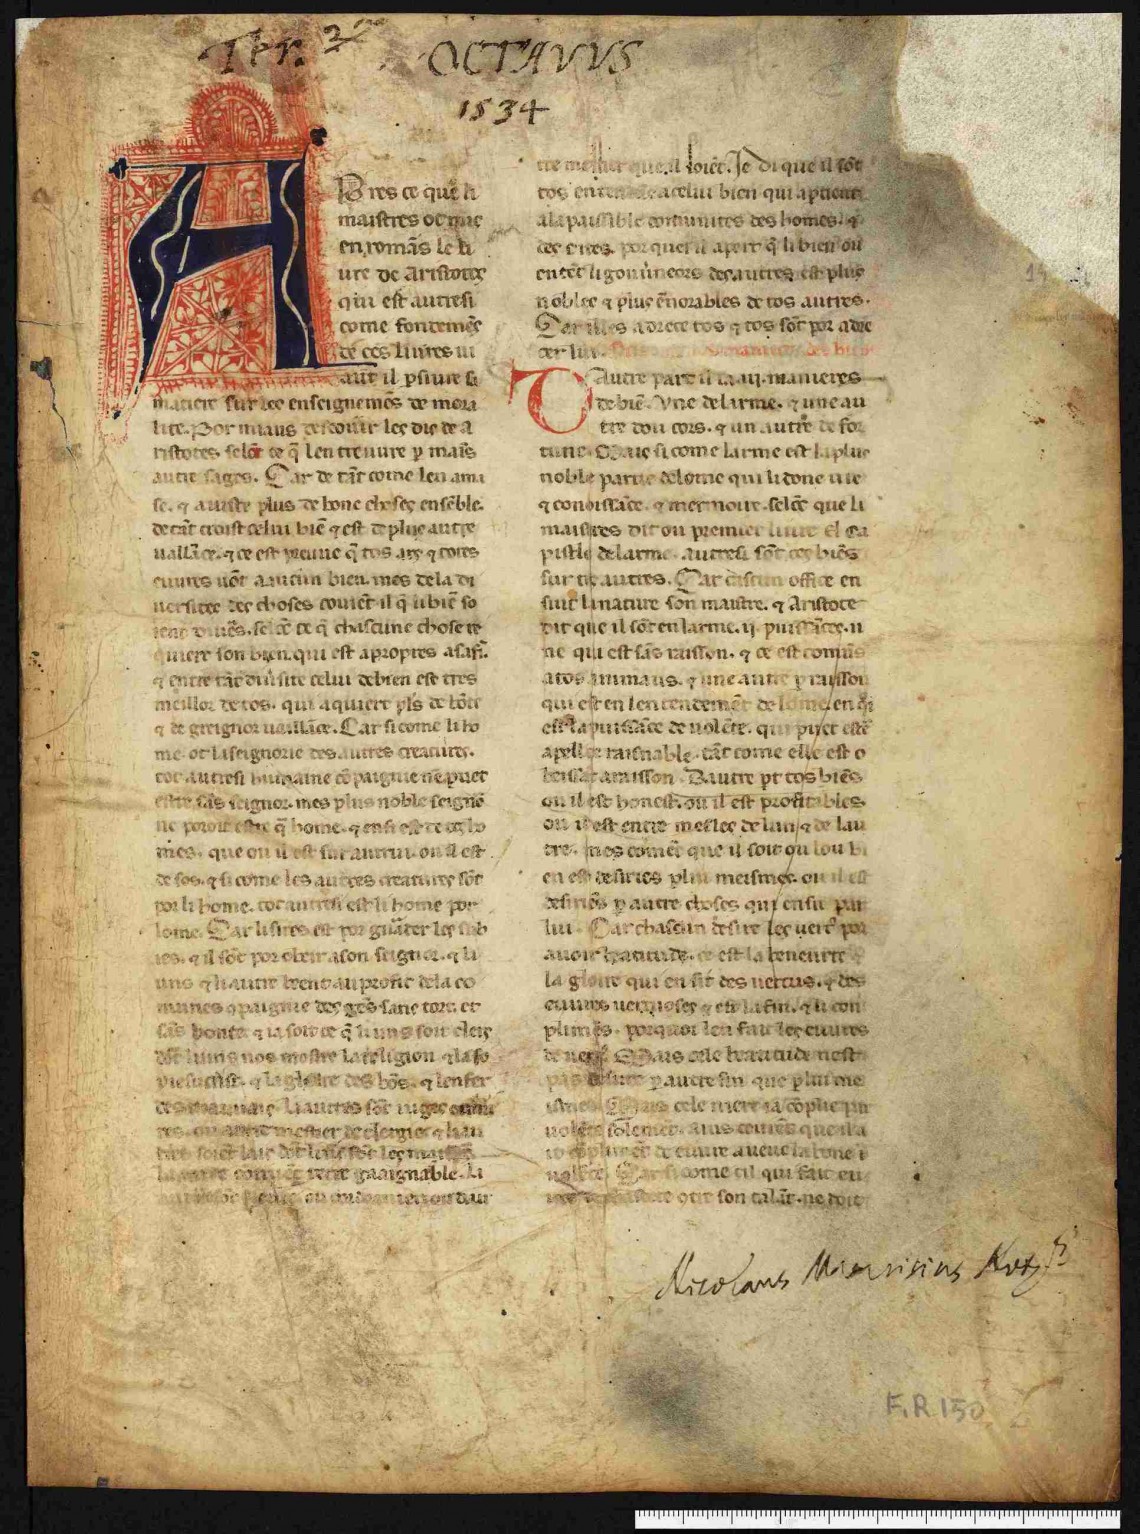 Ter. 2a OCTAVUS
1534
A
Pres ce que li
maistres ot mis
en romãs le li
ure de Aristotes
qui est autresi
come fondemẽs
de ces liures ui
aut il ꝑsiure sa
matiere sur les enseignemẽs de mora
lite. Por miaus descourir les dis de a
ristotes. selõc ce q̃ len treuure ꝑ maĩs
autre sages. Car de tãt come len ama
se. ⁊ aiuste plus de bone choses ensẽble.
de tãt croist celui biẽ ⁊ est de plus autre
uaillãce. ⁊ ce est prouue q̃ tos ars ⁊ totes
euures uõt a aucun bien. mes de la di
uersitee des choses couiẽt il q̃ li biẽ so
ient diuẽs. selõc ce q̃ chascune chose re
quiere son bien. qui est apropres a sa fĩ.
⁊ entre tãt diũsite celui de bien est tres
meillor de tos. qui aquiert pl's de bõte
⁊ de greignor uaillãce. Car si come li ho
me. ot la seignorie des autres creatures.
tot autresi humaine cõpaignie ne puet
estre sãs seignor. mes plus noble seigno
ne poroit estre q̃ home. ⁊ ensi est de ces ho
mes. que ou il est sur autrui. ou il est
de sos. ⁊ si come les autres creatures sõt
por li home. tot autresi est li home por
lome. Car li sires est por guãder les sub
ies. ⁊ il sõt por obeir a son seignor. ⁊ li
uns ⁊ li autre beent au profit de la co
munes cõpaignie des gẽs sanz tort et
sãs honte. ⁊ ia soit ce q̃ li uns soit clers
dõt li uns nos mostre la religion ⁊ la fo
⁊ la gloire des bõs. ⁊ lenfer
des mauuais. li autres sõt iuges
mestier de clergie. ⁊ li au
tre soiẽt lais dõt li uns fõt les maisõs
terre gaaignable. li
ou cordoanier ou dau
tre mestier que il soiẽt. Je di que il sõt
tos a celui bien qui apẽent
a la paissible comunites des homes. ⁊
des cites. por quei il apert q̃ li bien ou
entẽt li gouũneors des autres est plus
nobles ⁊ plus ẽnorables de tos autres.
Car il les adrece tos ⁊ tos sõt por adre
cer lui.
D Autre part il ia .iij. manieres
de biẽ. Vne de larme. ⁊ une au
tre dou cors. ⁊ un autre de for
tune. Mais si come larme est la plus
noble partie de lome qui li done uie
⁊ conoissãce. ⁊ memoire. selõc que li
maistres dit ou premier liure el ca
pistle de larme. autresi sõt ces biẽs
sur tos autres. Car chascun office en
suit la nature son maistre. ⁊ Aristote
dit que il sõt en larme .ij. puissãces. u
ne qui est sãs raisson. ⁊ ce est comũs
a tos animaus. ⁊ une autre ꝑ raisson
qui est en lentendemẽt de lome. en q̃i
est la puissãce de uolẽte. qui puet estre
apellee raisnable. tãt come elle est o
beissãt a raisson. Dautre pt tos biẽs
ou il est honest. ou il est profitables.
ou il est entre mesles de lun ⁊ de lau
tre. mes comẽt que il soit ou lou bi
en est desirres ꝑ lui meismes. ou il est
desirrés ꝑ autre choses qui ensiu par
lui. Car chascun desire les uertꝰ por
auoir beatitude. ce est la beneurte ⁊
la gloire qui en sit des uertus. ⁊ des
euures uertuoses ⁊ est la fin. ⁊ li con
plimẽs. por quoi len fait les euures
de uertu. Mais cele beatitude nest
pas desiree ꝑ autre fin que ꝑ lui me
ismes. Mais cele niert ia cõplie par
uolẽte solemẽt. ains couiẽt que il a
it cõplimẽt de euure aueuc la bone
uolẽte. Car si come cil qui fait eu
son talãt. ne doit
Nicolaus
F.R 150